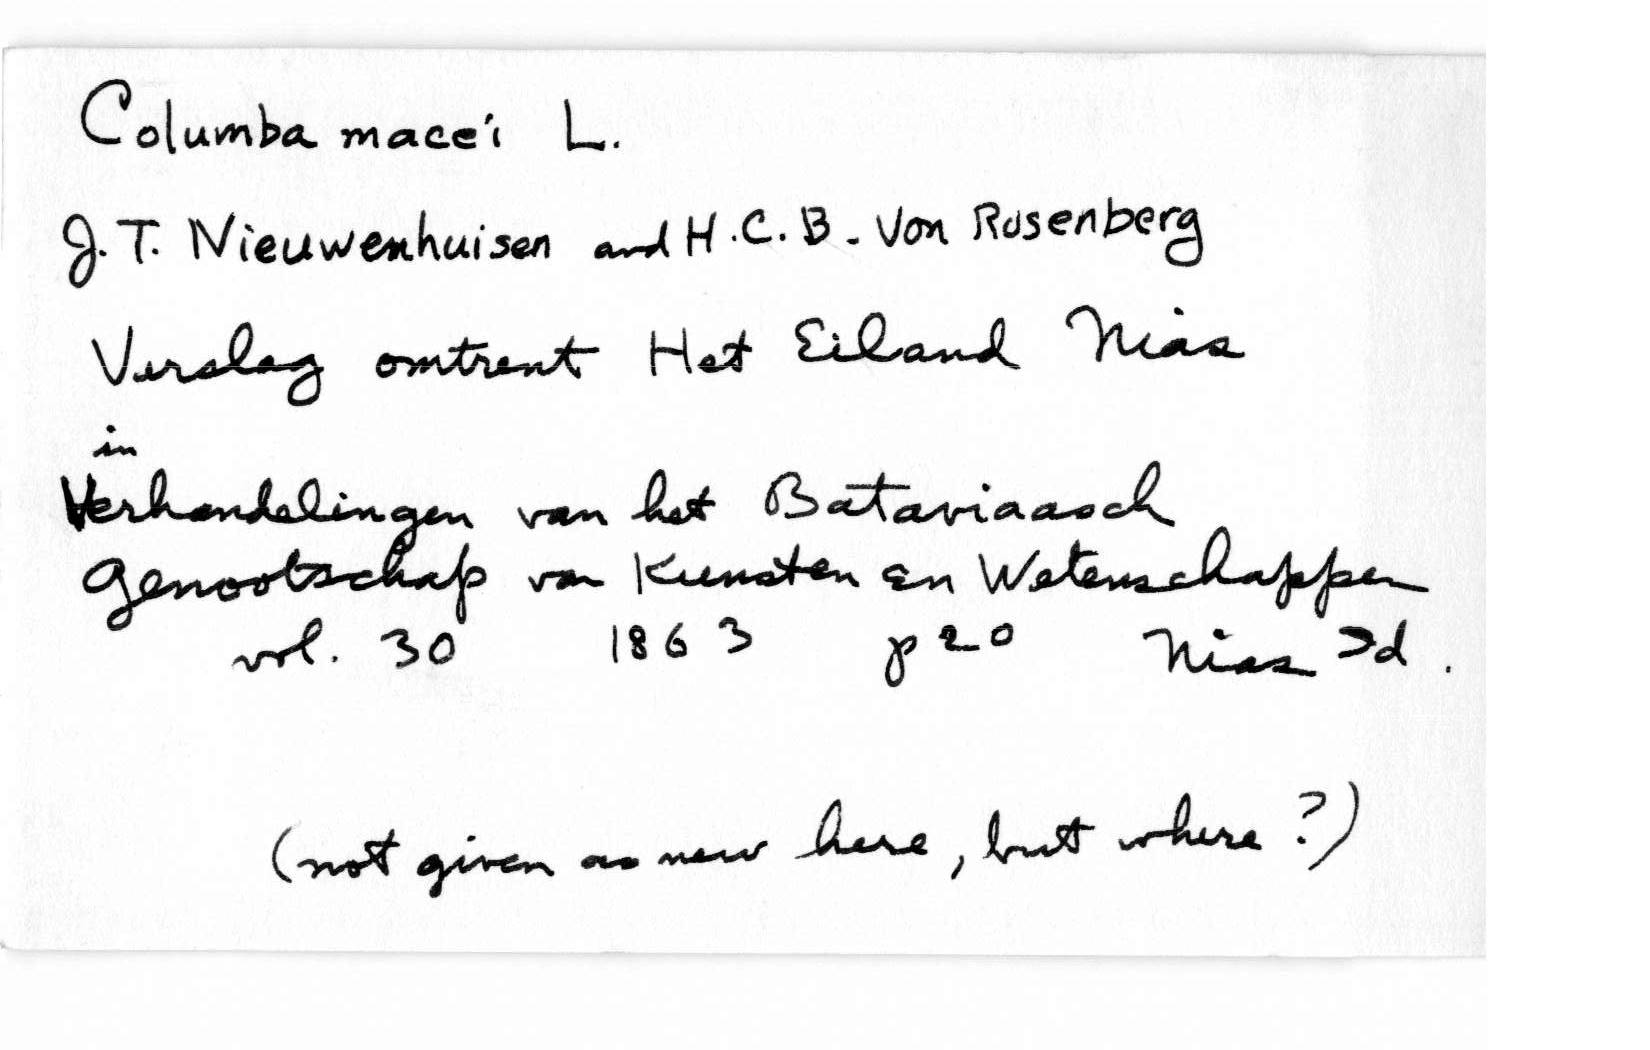 Columba mace'i L.
J. T. Nieuwenhuisen and H. C. B. Von Rosenberg
Verslag omtrent Het Eiland Nias
in
Verhandelingen van het Bataviaasch
Genootschap van Kunsten en Wetenschappen
vol. 30 1863 p 20 Nias Id.
(not given as new here, but where?)